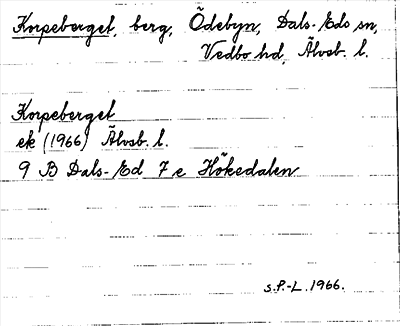 Korpeberget, berg, Ödebyn, Dals-Eds sn,
Vedbo hd, Älvsb. l.
Korpeberget
ek (1966) Älvsb. l.
9 B Dals-Ed 7 e Hökedalen
S.P.-L. 1966.